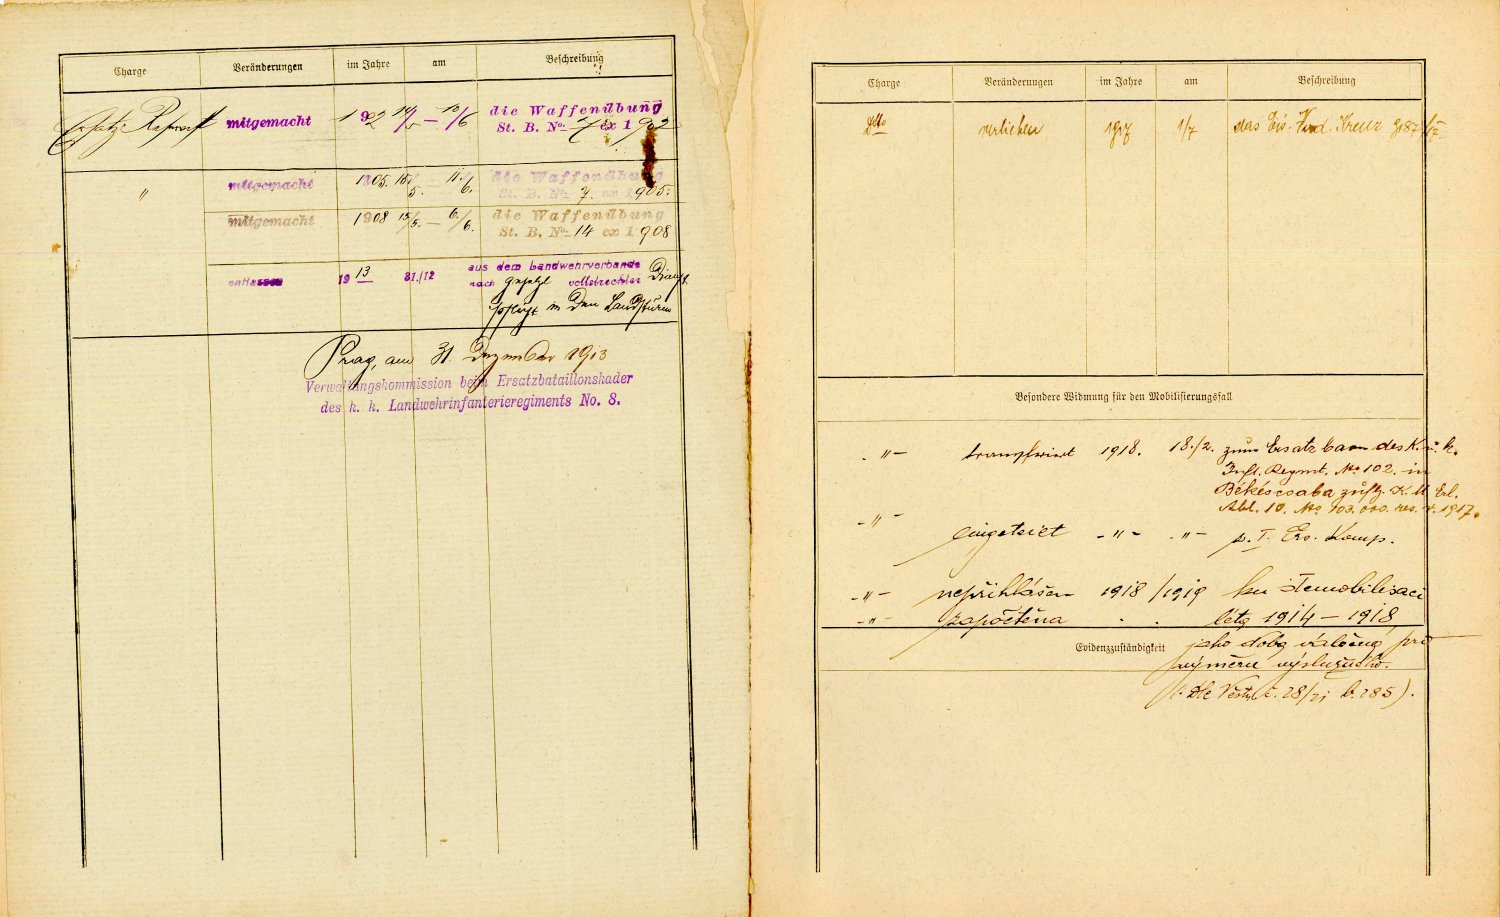 Charge Veränderungen im Jahre am Beschreibung
Ersatz-Reservist mitgemacht 1902 — 10/6 die Waffenübung
St. B. No. 7 ex 1902
" mitgemacht 1905. 15/5. — 11./6. die Waffenübung
St. B. No. 7. ex 1905.
mitgemacht 1908 15/5. — 6/6. die Waffenübung
St. B. No. 14 ex 1908
entlassen 1913 31./12 aus dem Landwehrverbande
nach gesetzl vollstreckter Dienst
pflicht in den Landsturm
Prag, am 31. Dezember 1913
Verwaltungskommission beim Ersatzbataillonskader
des k. k. Landwehrinfanterieregiments No. 8.
Charge Veränderungen im Jahre am Beschreibung
Dtto verliehen 1917 1/7 das Eis. Verd. Kreuz
Besondere Widmung für den Mobilisierungsfall
-"- transferiert 1918. 18./2. zum Ersatzbaon des K. u. k.
Inft. Regmt. No 102. in
Békéscsaba zufg. K. M. Erl.
Abt. 10. No 103.000. res. v. 1917.
-"- eingeteilt -"- -"- z. I. Ers. Komp.
-"- nepřihlášen 1918/1919 ku demobilisaci
-"- započtena . . léta 1914 – 1918
Evidenzzuständigkeit jako doba válečná pro
výměru výslužného.
(: dle Věst. č. 28/21 b. 285).